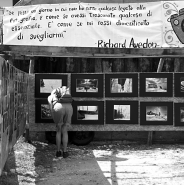 "Se passa un giorno in cui non ho fatto qualcosa legato alla
fotografia, è come se avessi trascurato qualcosa di
essenziale. E' come se mi fossi dimenticato
di svegliarmi"
- Richard Avedon -